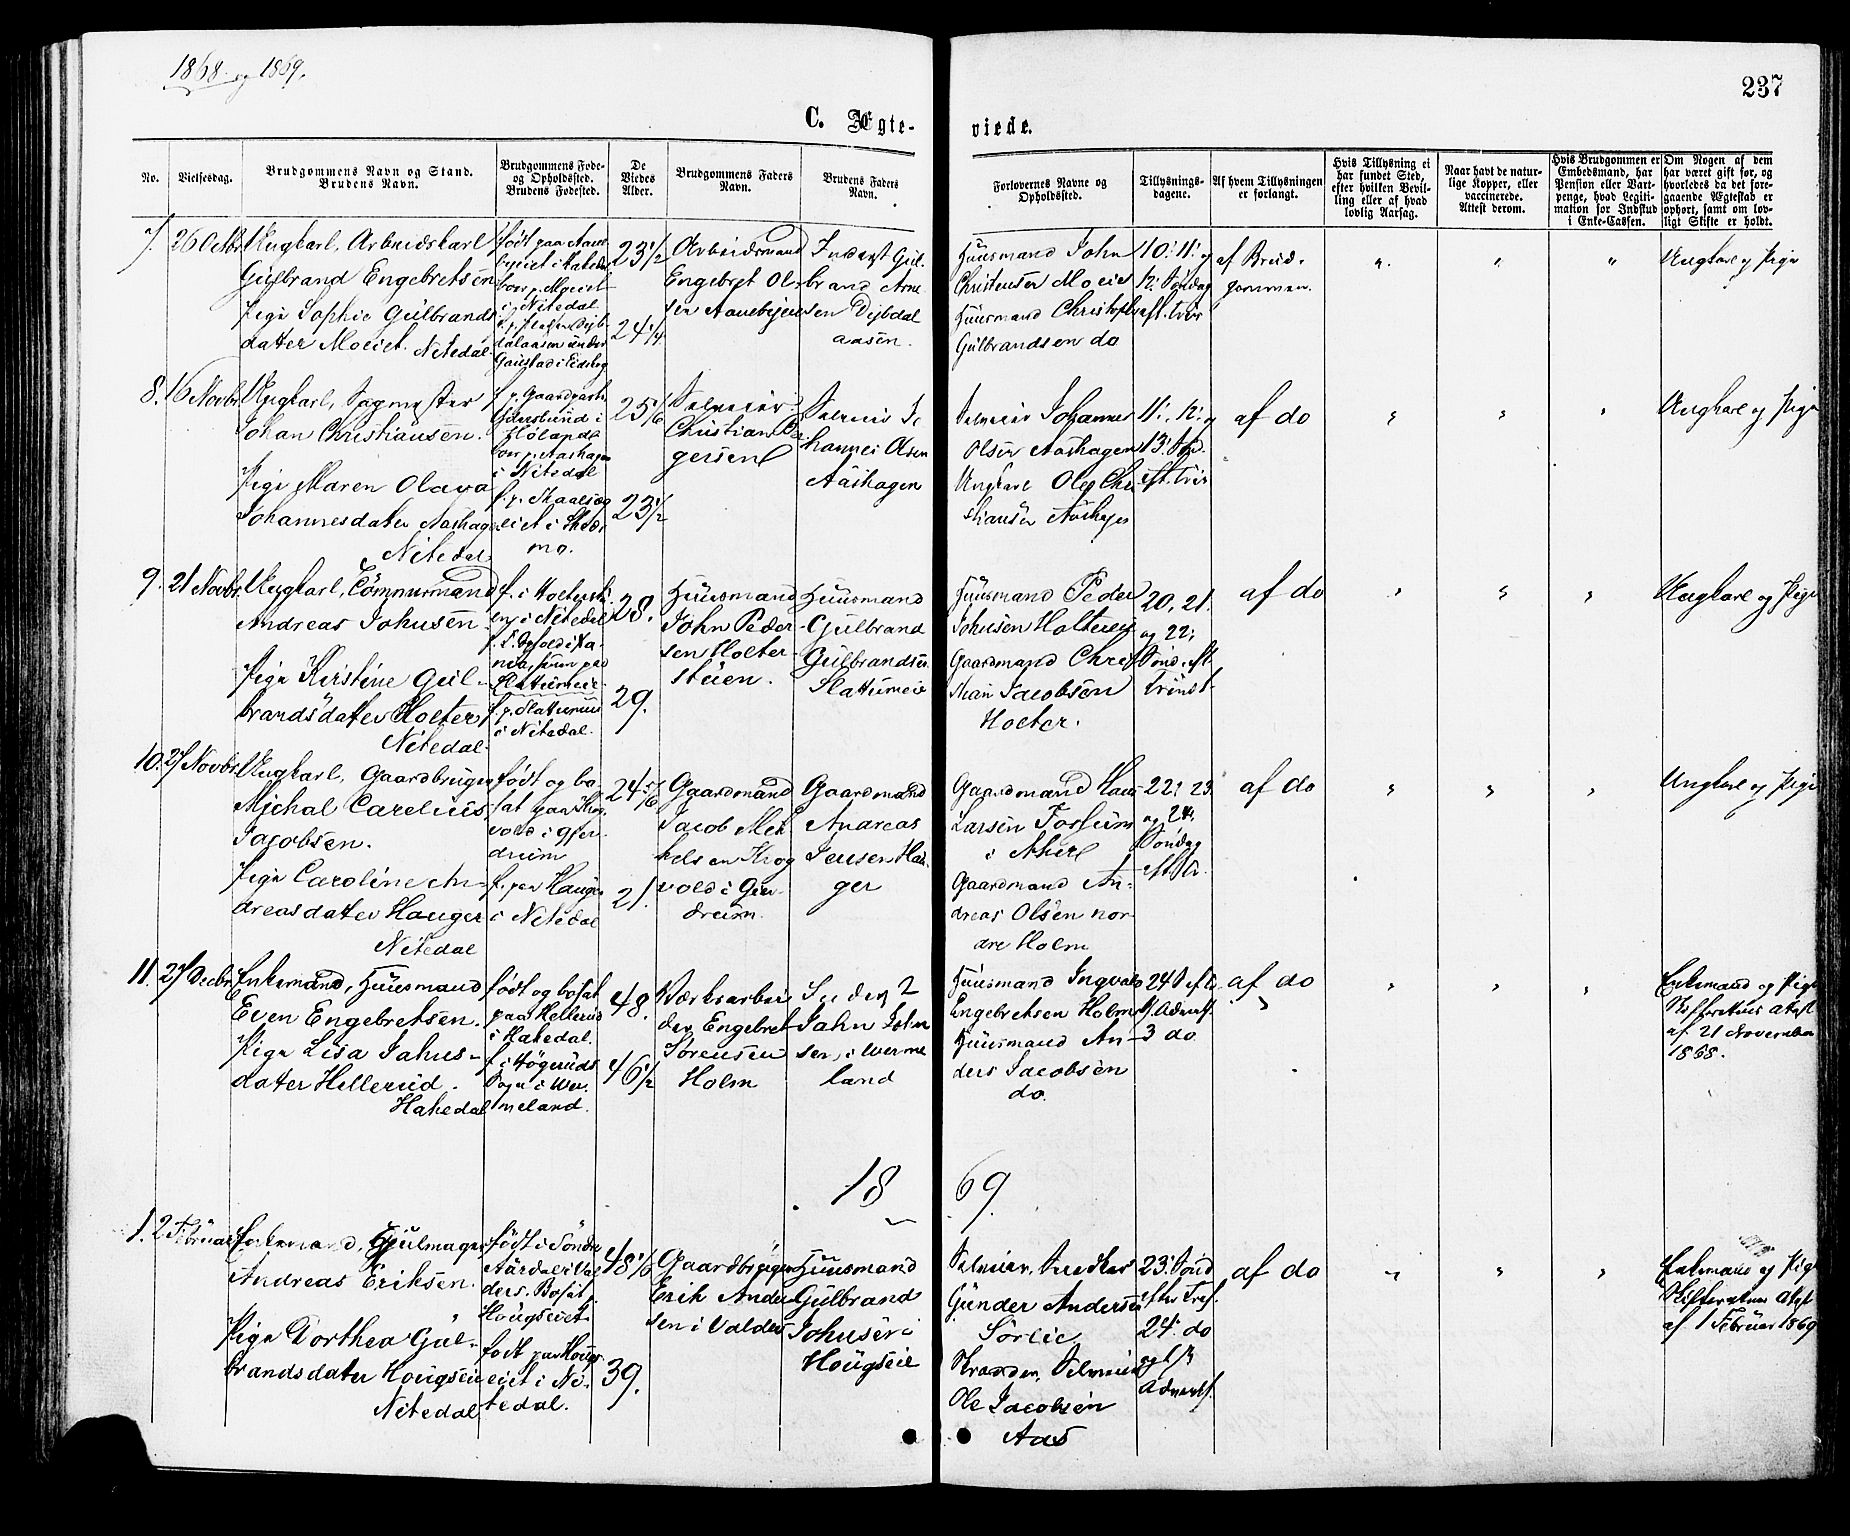 1868 og 1869.
237
C. Ægte-
viede.
No.
Vielsesdag.
Brudgommens Navn og Stand.
Brudens Navn.
Brudgommens Føde-
og Opholdssted.
Brudens Fødested.
De
Viedes
Alder.
Brudgommens Faders
Navn.
Brudens Faders
Navn.
Forlovernes Navne og
Opholdssted.
Tillysnings-
dagene.
Af hvem Tillysningen
er forlangt.
Hvis Tillysning ei
har fundet Sted,
efter hvilken Bevil-
ling eller af hvad
lovlig Aarsag.
Naar havt de natur-
lige Kopper, eller
vaccinerede.
Attest derom.
Hvis Brudgommen er
Embedsmand, har
Pension eller Vart-
penge, hvad Legiti-
mation for Indskud
i Enke-Cassen.
Om Nogen af dem
har været gift før, og
hvorledes da det fore-
gaaende Ægteskab er
ophørt, samt om lov-
ligt Skifte er holdt.
7. 26 Octbr.
Ungkarl, Arbeidskarl
Gulbrand Engebretsen
Pige Sophie Gulbrands
datter Moeiet. Nitedal
født paa Aane
byeiet i Hakedal
boer p. Moeiet
i Nitedal
f. p. Pladsen Dyb
dalaasen under
23 1/2
24 1/4
Arbeidsmand
Engebret Ol-
sen Aanebyeie
Inderst Gul-
brand Arne
sen Dybdal
aasen.
Huusmand John
Christensen Moeiet
Huusmand Christoph
Gulbrandsen do
10: 11: og
12: Søndag
eft. Trin
af Brud-
gommen.
" " "
Ungkarl og Pige
8. 16 Novbr.
Ungkarl, Sagmester
Johan Christiansen.
Pige Maren Olava
Johannesdatter Aashage
Nitedal
f. p. Gaardparten
i
Høland
boer p. Aashagen
i Nitedal
f. p. Skaalsjø
eiet i Skedsmo.
25 1/6
23 1/2
Selveier
Christian Bir
gersen
Selveier Jo
hannes Olsen
Aashagen
Selveier Johannes
Olsen Aashagen
Ungkarl Ole Chri
stiansen Aashagen
11: 12: og
13: Sønd.
eft. Trin
af do
" " "
Ungkarl og Pige
9. 21 Novbr.
Ungkarl, Tømmermand
Andreas Johnsen
Pige Kirstine Gul-
brandsdatter Holter
Nitedal
f. i Holterstu
en i Nitedal
f. T. Ophold i Ca-
nada, hun paa
Slattumeie
f. p. Slattumeie
i Nitedal.
28.
29.
Huusmand
John Peder
sen Holter-
stuen.
Huusmand
Gulbrand
Gulbrandsen
Slattumeie
Huusmand Peder
Johnsen Holtereie
Gaardmand Chris
tian Jacobsen
Holter.
20, 21.
og 22:
Sønd. eft.
Trinit.
af do
" " "
Ungkarl og Pige
10. 27 Novbr.
Ungkarl, Gaardbruger
Michal Carelius
Jacobsen.
Pige Caroline An-
dreasdatter Hauger
Nitedal
født og bo-
sat paa Krog
vold i Gjer-
drum
f. paa Hauger
i Nitedal
24 5/6
21.
Gaardmand
Jacob Mik
kelsen Krog
vold i Gjer-
drum.
Gaardmand
Andreas
Jensen Hau
ger
Gaardmand Hans
Larsen Fossum
i Aker
Gaardmand An-
dreas Olsen nor-
dre Holm
22: 23
og 24:
Søndag
eft. Tr.
af do
" " "
Ungkarl og Pige
11. 27 Decbr.
Enkemand, Huusmand
Even Engebretsen.
Pige Lisa Jahns-
datter Hellerud.
Hakedal
født og bosat
paa Hellerud
i Hakedal.
f. i Høgeruds
Sogn i Wer-
meland.
48.
46 1/2
Værksarbei
der Engebret
Sørensen
Holm
Jahn John
sen i Werme
land
Huusmand Ingvald
Engebretsen Holm
Huusmand An-
ders Jacobsen
do.
24 S. eft.
1. Advent.
3 do
af do
" " "
Enkemand og Pige
Skifterettens Attest
af 21 November
1868.
18 69.
1. 2 Februar
Enkemand, Hjulmager
Andreas Eriksen.
Pige Dorthea Gul-
brandsdatter Hougseie
Nitedal
født i Søndre
Aurdal i Val
ders. Bosat p.
Hougseiet.
født paa Hougs
eiet i Ni-
tedal.
48 1/6
39.
Gaardbruger
Erik Ander
sen i Valders
Huusmand
Gulbrand
Johnsen
Hougseie
Selveier, Snedker
Gunder Andersen
Sørlie
Selveier
Ole Jacobsen
Aas
23: Sønd
efter Tref.
24: do
og 1ste
Advent.
af do
" " "
Enkemand og Pige
Skifterettens Attest
af 1 Februar 1869